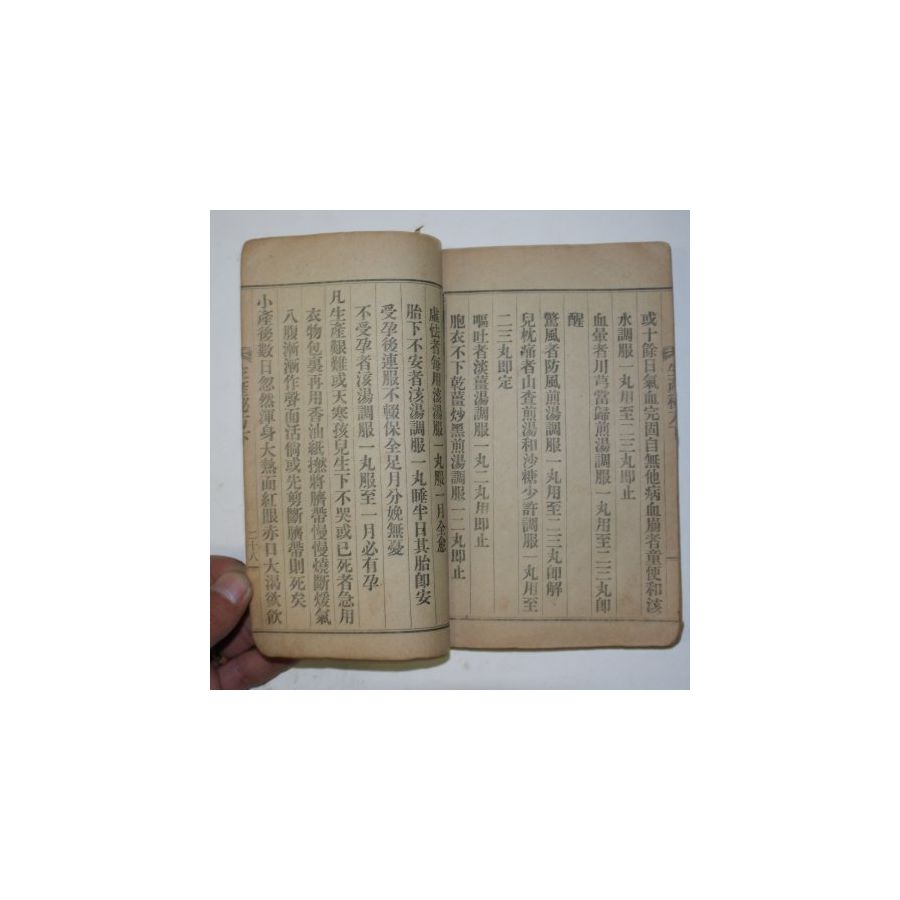 或十餘日氣血完固自無他病血崩者童便和滾
水調服一丸用至二三丸即止
血暈者用芎當歸煎湯調服一丸用至二三丸即
醒
驚風者防風煎湯調服一丸用至二三丸即解
兒枕痛者山查煎湯和沙糖少許調服一丸用至
二三丸即定
嘔吐者淡薑湯調服一丸二丸用即止
胞衣不下乾薑炒黑煎湯調服一二丸即止
虛怯者每用滾湯服一丸服一月全愈
胎下不安者滾湯調服一丸睡半日其胎卽安
受孕後連服不輟保全足月分娩無憂
不受孕者滾湯調服一丸服至一月必有孕
凡生產艱難或天寒孩兒生下不哭或已死者急用
衣物包裹再用香油紙撚將臍帶慢慢燒斷煖氣
入腹漸漸作聲而活倘或先剪斷臍帶則死矣
小產後數日忽然渾身大熱面紅眼赤口大渴欲飲